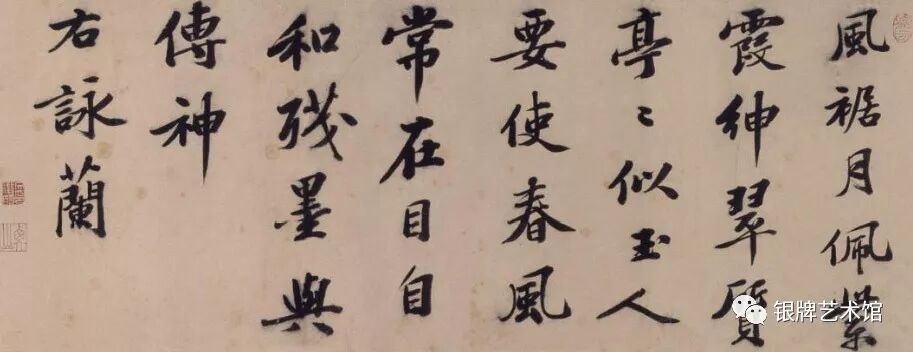 風裾月佩紫
霞紳翠質
亭〻似玉人
要使春風
常在目自
和殘墨與
傳神
右詠蘭
银牌艺术馆